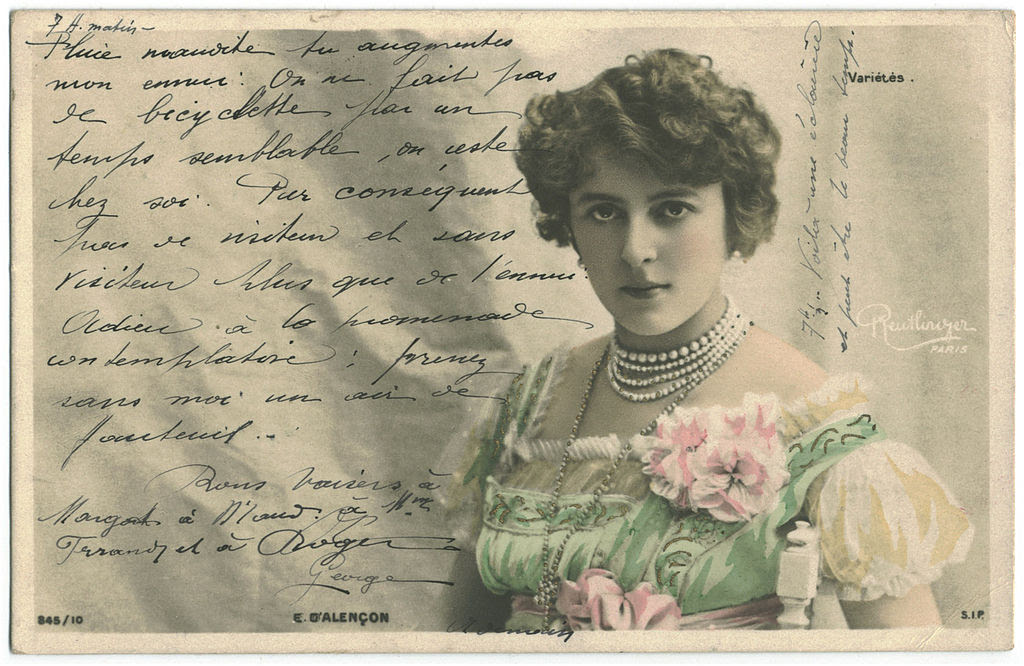 7 H. matin -
Pluie maudite tu augmentes
mon ennui. On ne fait pas
de bicyclette par un
temps semblable, on reste
chez soi. Par conséquent
Pas de visiteur et sans
Visiteur plus que de l'ennui.
Adieu à la promenade
contemplative ; prenez
sans moi un air de
fauteuil...
Bons baisers à
Margot à Maud. à Mme
Ferrand et à Roger
George
7h ½ - Voilà une éclaircie
et peut être le beau temps.
Variétés.
Reutlinger
PARIS
845/10
E. D'ALENÇON
A demain
S.I.P.